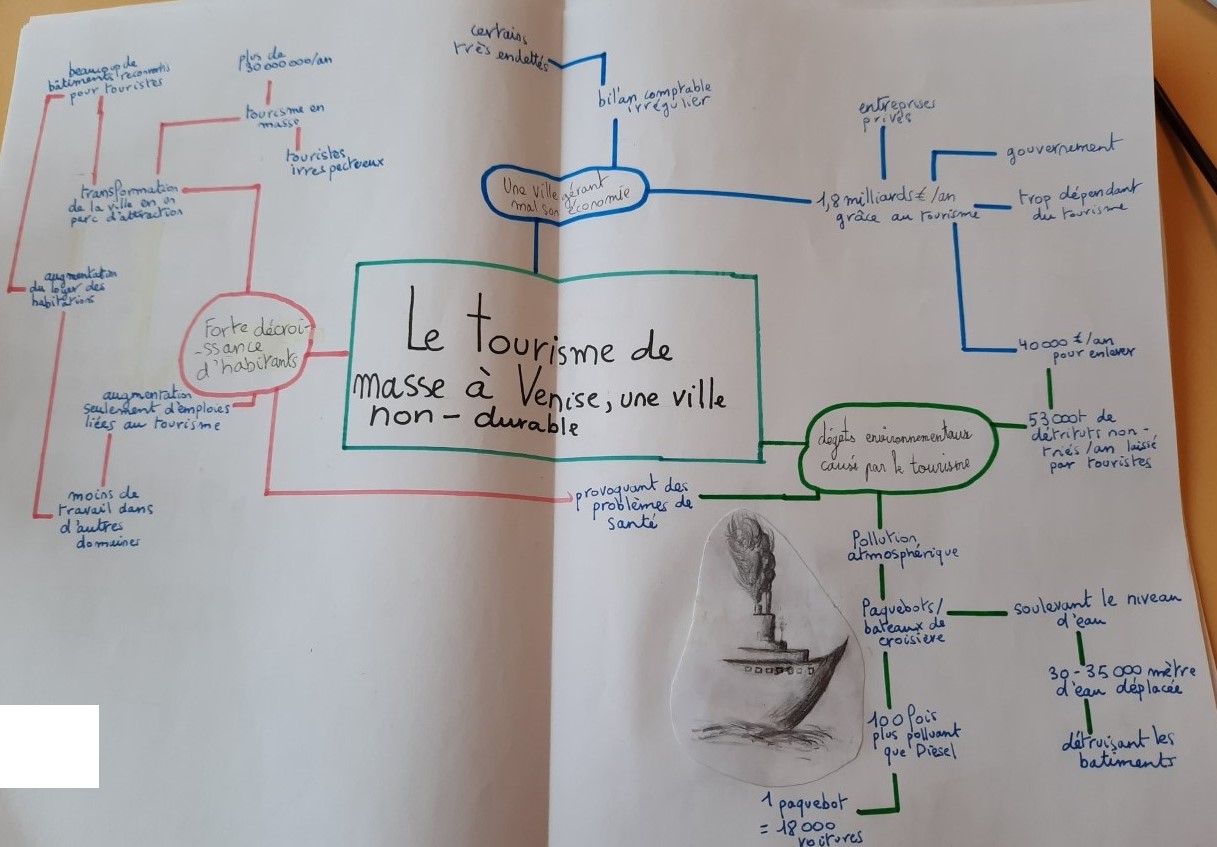 Le tourisme de
masse à Venise, une ville
non-durable
Une ville gérant
mal son économie
bilan comptable
irrégulier
certains
très endettés
1,8 milliards €/an
grâce au tourisme
entreprises
privés
gouvernement
trop dépendant
du tourisme
40 000 €/an
pour enlever
53000t de
détrituts non-
triés/an laissé
par touristes
dégâts environnementaux
causé par le tourisme
Pollution
atmosphérique
Paquebots/
bateaux de
croisière
soulevant le niveau
d'eau
30-35 000 mètre
d'eau déplacée
détruisant les
batiments
100 fois
plus polluant
que Diesel
1 paquebot
= 18 000
voitures
provoquant des
problèmes de
santé
Forte décroi-
-ssance
d'habitants
transformation
de la ville en un
parc d'attraction
tourisme en
masse
plus de
30 000 000/an
touristes
irrespectueux
beaucoup de
bâtiments reconvertis
pour touristes
augmentation
du loyer des
habitations
augmentation
seulement d'emploies
liées au tourisme
moins de
travail dans
d'autres
domaines